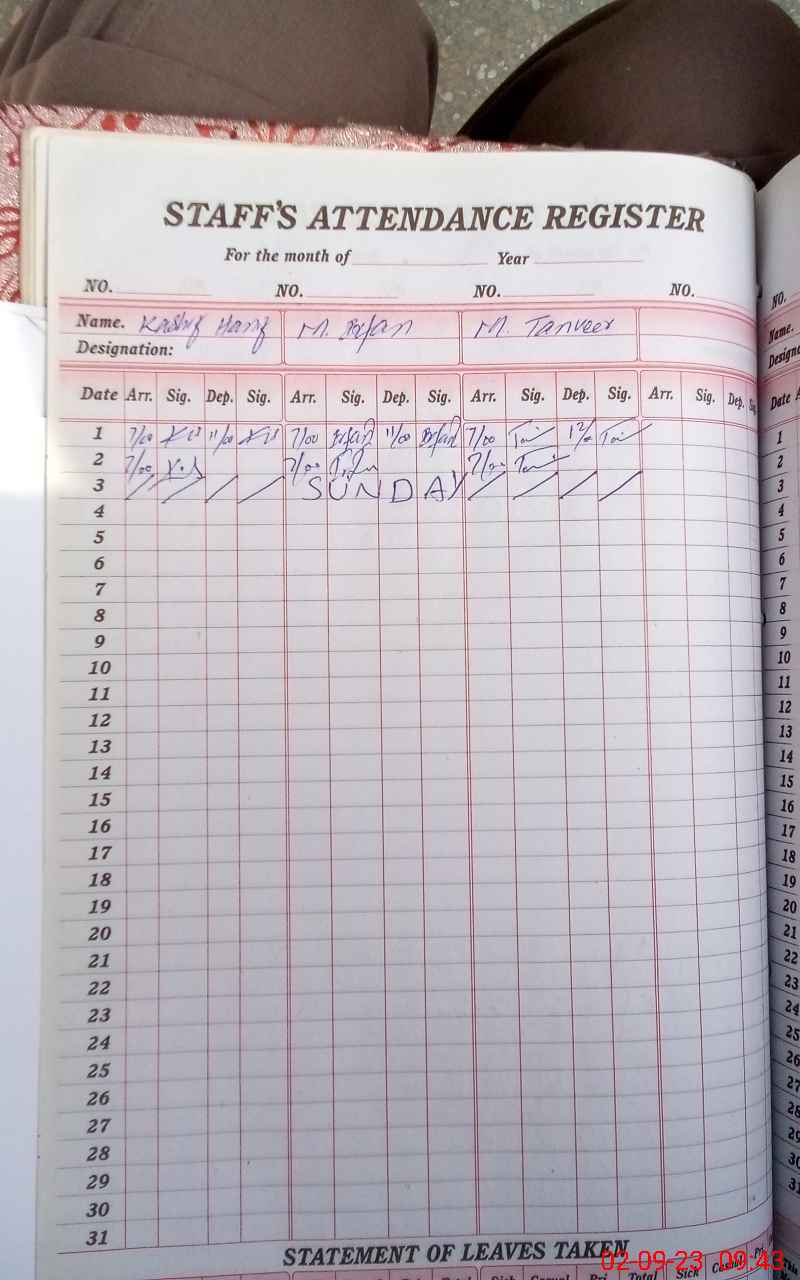 STAFF'S ATTENDANCE REGISTER
For the month of Year
NO. NO. NO. NO. NO.
Name. Kashif Hanif M. Irfan M. Tanveer Name.
Designation:
Date Arr. Sig. Dep. Sig. Arr. Sig. Dep. Sig. Arr. Sig. Dep. Sig. Arr. Sig. Dep. Date
1 7/00 11/00 7/00 Irfan 11/00 Irfan 7/00 1
2 7/00 7/00 7/00 2
3 SUNDAY 3
4 4
5 5
6 6
7 7
8 8
9 9
10 10
11 11
12 12
13 13
14 14
15 15
16 16
17 17
18 18
19 19
20 20
21 21
22 22
23 23
24 24
25 25
26 26
27 27
28 28
29
30
31
STATEMENT OF LEAVES TAKEN
02-09-23 09:43
Total Sick Casual Pri. Total Sick